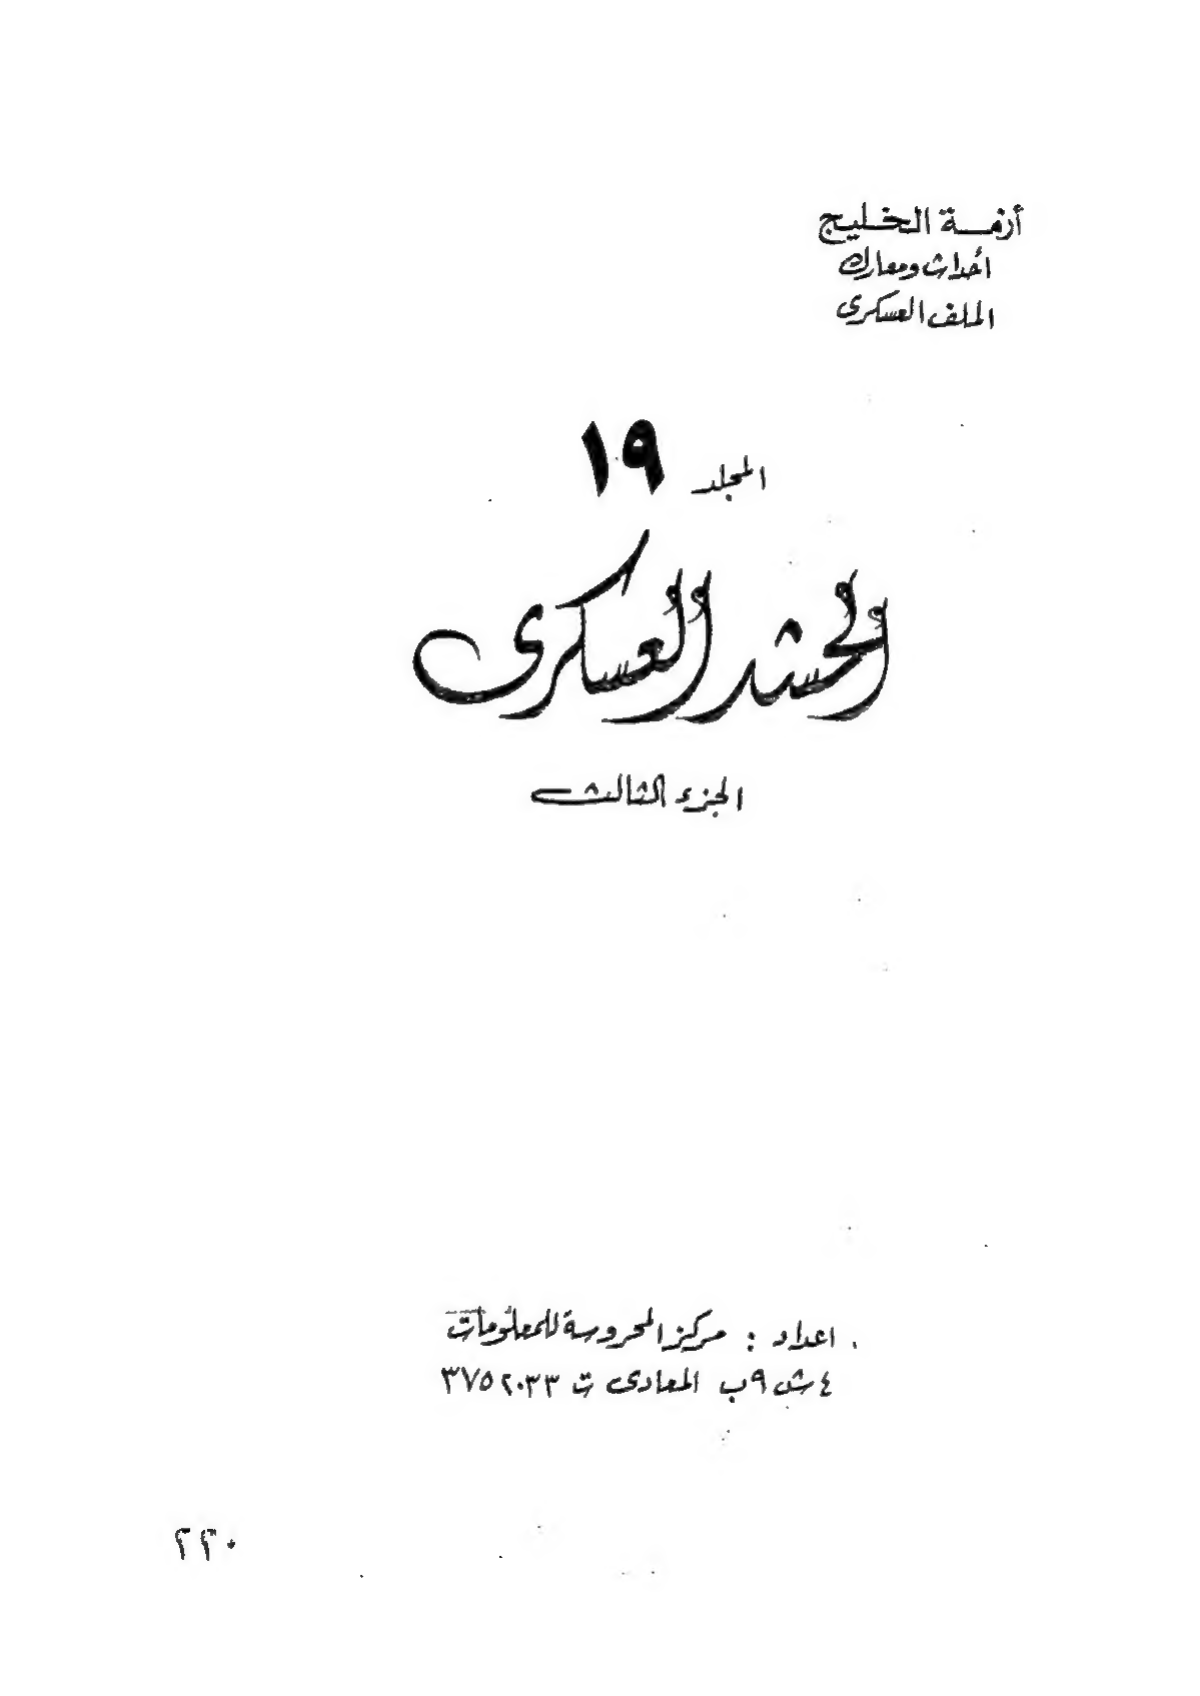 أزمة الخليج
أحداث ومعارك
الملف العسكرى
المجلد ١٩
الحشد العسكرى
الجزء الثالث
اعداد : مركز المحروسة للمعلومات
٤ ش ٩ب المعادى ت ٣٧٥٢٠٣٣
٢٢٠